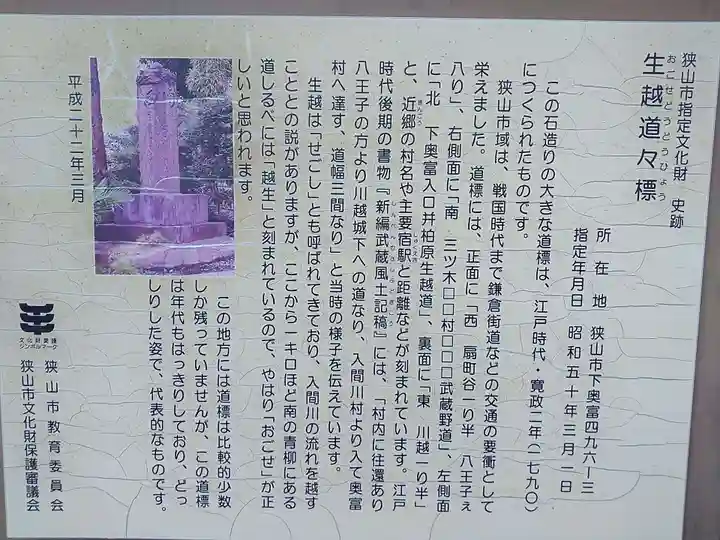 狭山市指定文化財　史跡
おごせどうどうひょう
生越道々標
所在地　狭山市下奥富四九六ー三
指定年月日　昭和五十年三月一日
この石造りの大きな道標は、江戸時代・寛政二年（一七九〇）
につくられたものです。
狭山市域は、戦国時代まで鎌倉街道などの交通の要衝として
栄えました。道標には、正面に「西　扇町谷一り半　八王子ぇ
八り」、右側面に「南　三ツ木□□村□□□武蔵野道」、左側面
に「北　下奥富入口并柏原生越道」、裏面に「東　川越一り半」
と、近郷の村名や主要宿駅と距離などが刻まれています。江戸
時代後期の書物『新編武蔵風土記稿』には、「村内に往還あり
八王子の方より川越城下への道なり、入間川村より入て奥富
村へ達す、道幅三間なり」と当時の様子を伝えています。
生越は「せごし」とも呼ばれてきており、入間川の流れを越す
こととの説がありますが、ここから一キロほど南の青柳にある
道しるべには「越生」と刻まれているので、やはり「おごせ」が正
しいと思われます。
この地方には道標は比較的少数
しか残っていませんが、この道標
は年代もはっきりしており、どっ
しりした姿で、代表的なものです。
平成二十二年三月
文化財愛護
シンボルマーク
狭山市教育委員会
狭山市文化財保護審議会